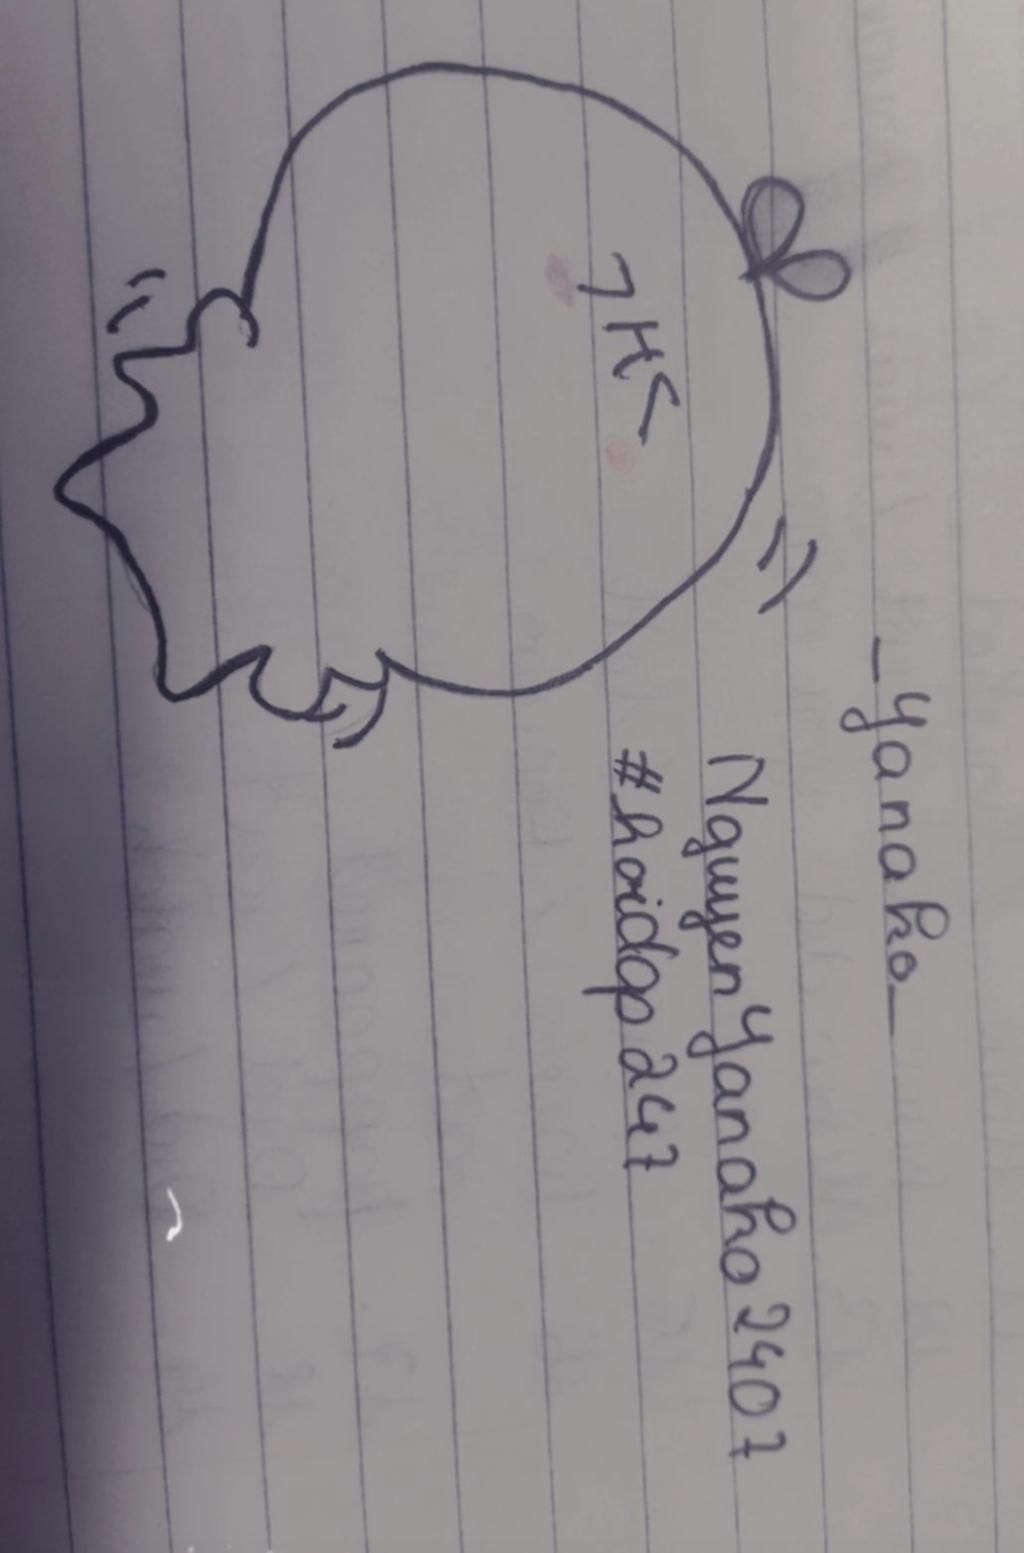 _Yanaho_
NguyenYanaho2407
#hoidap247